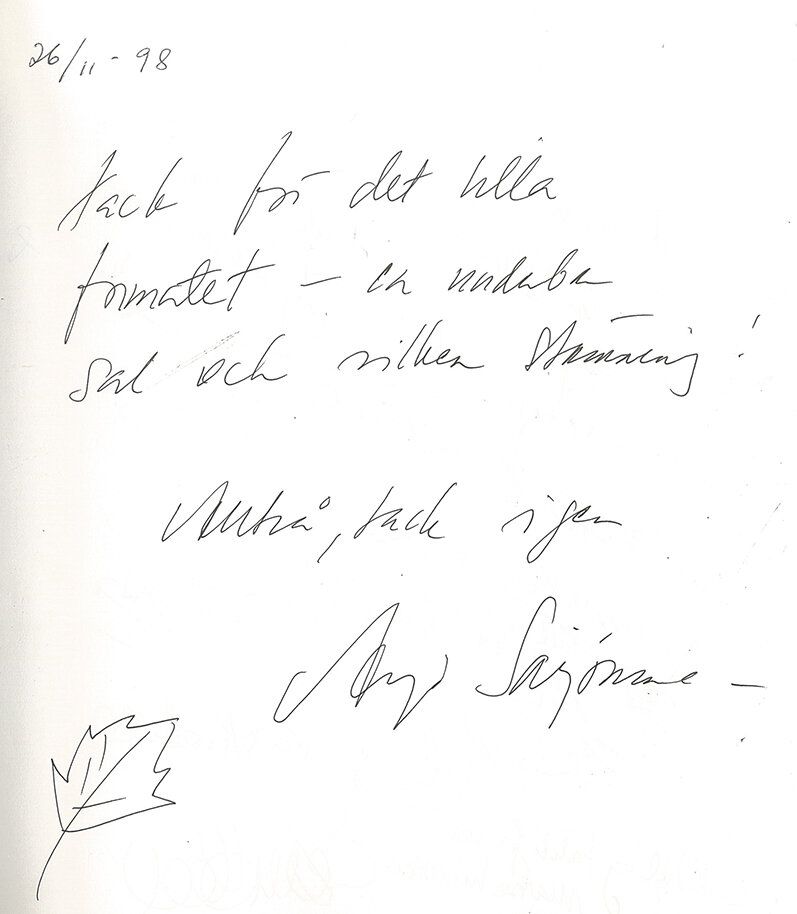 26/11-98
tack för det lilla
formatet – en underbar
sal och vilken stämning!
tack igen
Arja Saijonmaa –